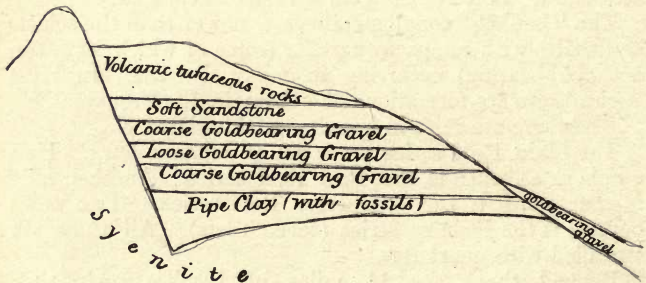 Volcanic tufaceous rocks
Soft Sandstone
Coarse Goldbearing Gravel
Loose Goldbearing Gravel
Coarse Goldbearing Gravel
Pipe Clay (with fossils)
goldbearing
gravel
Syenite